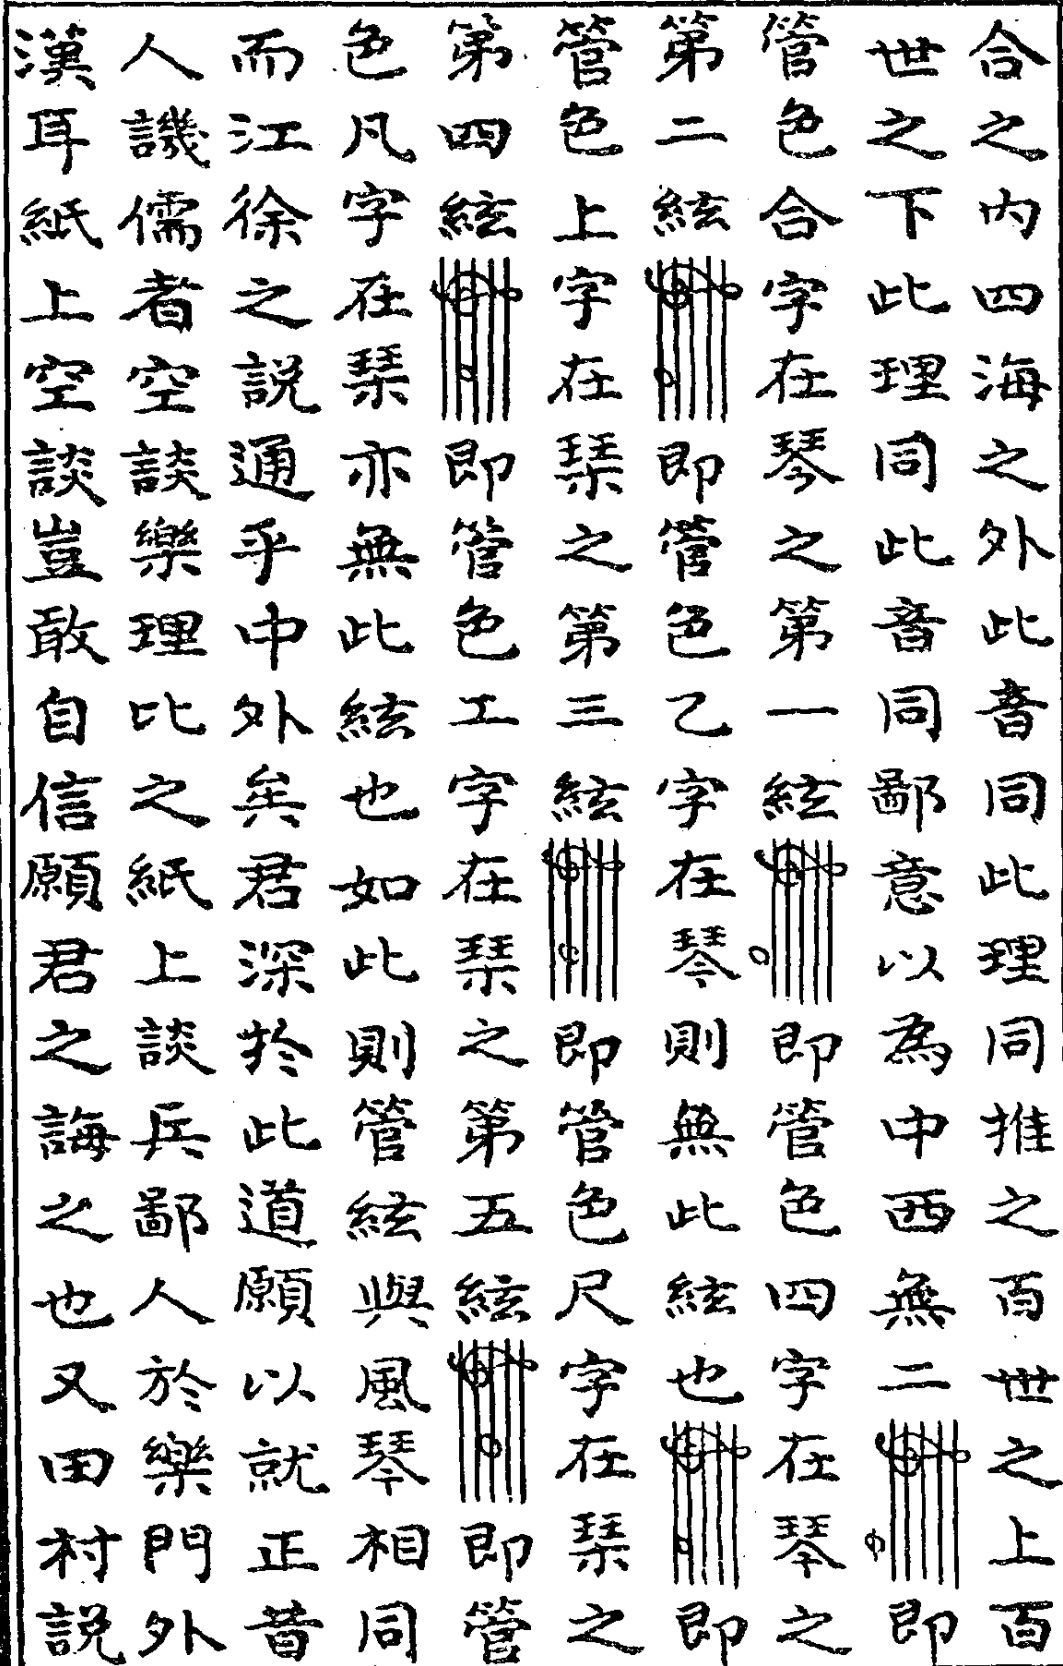 合之内四海之外此音同此理同推之百世之上百
世之下此理同此音同鄙意以為中西無二即
管色合字在琴之第一絃即管色四字在琴之
第二絃即管色乙字在琴則無此絃也即
管色上字在琹之第三絃即管色尺字在琹之
第四絃即管色工字在琹之第五絃即管
色凡字在琹亦無此絃也如此則管絃與風琴相同
而江徐之説通乎中外矣君深於此道願以就正昔
人譏儒者空談樂理比之紙上談兵鄙人於樂門外
漢耳紙上空談豈敢自信願君之誨之也又田村説